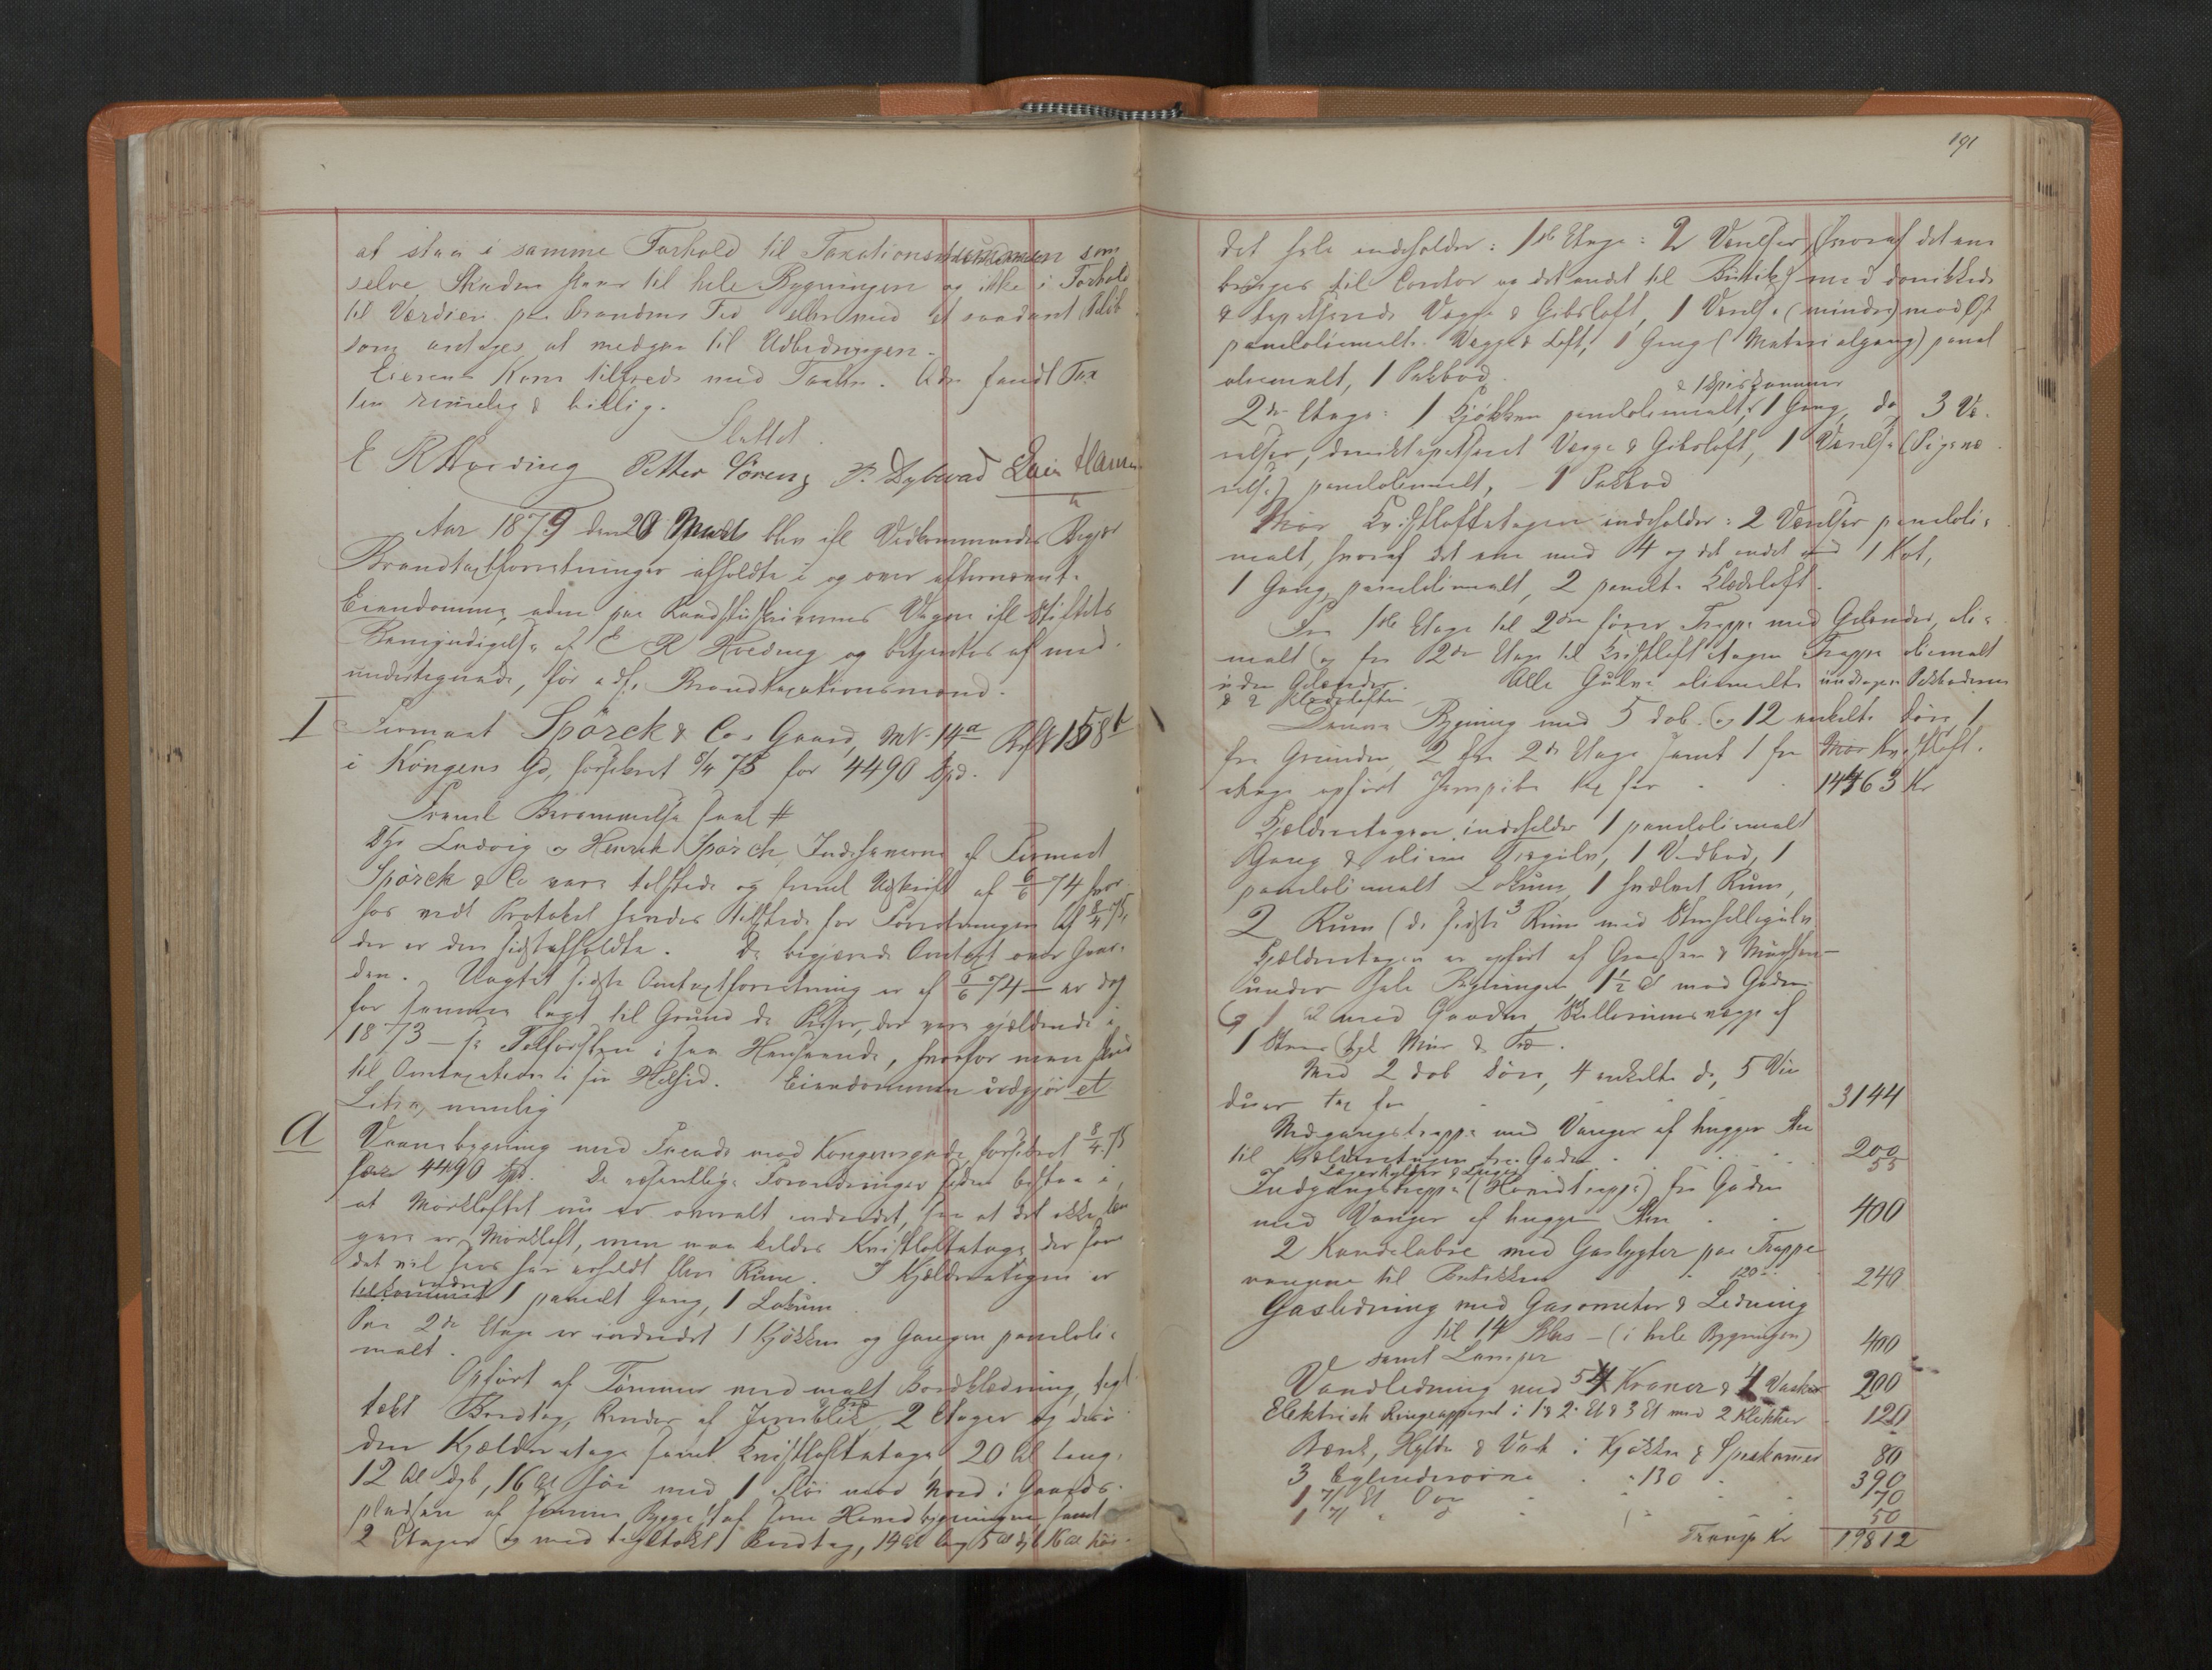 at staa i samme Forhold til Taxationssummen som
selve Skaden staar til hele Bygningen og ikke i Forhold
til Værdien paa Brandens Tid eller med et saadant Beløb
som antages at medgaa til Udbedringen.
Eieren Kom tilfreds med Taxten. fandt Tax
ten rimelig & billig.
Sluttet.
E R Hveding Petter Sørens P. Dybwad
Aar 1879 den 20 blev ifl Vedkommendes Begjær
Brandtaxtforretninger afholdte i og over efternævnte
Eiendomme, uden paa Raadstueskriverens Vegne ifl Stiftets
Bemyndigelse af E R Hveding og betjentes af med-
undertegnede, før edf. Brandtaxationsmænd.
I Firmaet Spörck & Co.s Gaard, Mt. 14a Brft 158b
i Kongens Gd, forsikret 8/4 75 for 4490 Spd.
Freml Berammelse saal #
Hr Ludvig og Henrik Spörck, Indehaverne af Firmaet
Spörck & Co vare tilstede og freml Udskrift af 6/6 74 hvor-
hos vedt Protokol fandtes tilstede for Forretningen af 8/4 75,
der er den sidstafholdte. De begjærede Omtaxt over Gaar-
den. Uagtet sidste Omtaxtforretning er af 6/6 74 — er dog
for samme lagt til Grund de Priser, der vare gjældende i
1873 — hvorfor man skred
til Omtaxation i sin Helhed. Eiendommen udgjør et
Litra, nemlig
A Vaanebygning med Facade mod Kongensgade forsikret 8/4 75
for 4490 Spd. De væsentlige Forandringer siden bestaa i,
at Mørkloftet nu er overalt indredet, saa at det ikke læn
gere er Mørkloft, men maa kaldes Kvistloftetage, der for
det vil sees har erholdt flere Rum. I Kjælderetagen er
indred 1 panelt Gang, 1 Lokum
Paa 2den Etage er indredet 1 Kjøkken og Gangen paneloli-
malt.
Opført af Tømmer med malt Bordklædning, tegl
tækt Bordtag, Render af Jernblik, 2 Etager og desu
den Kjælderetage samt Kvistloftetage 20 Al lang,
12 Al dyb, 16 Al høi med 1 Fløi mod Nord i Gaards-
pladsen af samme Byggestof som Hovedbygningen samt
2 Etager og med tegltækt Bordtag, 14 Al lang 5 Al dyb 16 Al høi.
191
det hele indeholder: 1ste Etage: 2 Værelser, hvoraf det ene
bruges til Contor og det andet til Butik med
& tapetserede Vægge & Gibsloft, 1 Værelse (mindre) mod Øst
paneloliemalte Vægge & Loft, 1 Gang (Materialgang) panel
oliemalt, 1 Pakbod.
& 1 Spiskammer
2den Etage: 1 Kjøkken paneloliemalt, 1 Gang, do, 3 Væ-
relser, tapetseret Vægge & Gibsloft, 1 Værelse (Pigevæ
relse) paneloliemalt, — 1 Pakbod
Kvistloftetagen indeholder: 2 Værelser paneloli-
malt, hvoraf det ene med 4 og det andet med 1 Kot,
1 Gang, paneloliemalt, 2 panelte Klædeloft.
Fra 1ste Etage til 2den fører Trappe med Gelænder, oli-
malt og fra 2den Etage til Kvistloftetagen Trappe oliemalt
uden Gelænder. Alle Gulve oliemalte undtagen Pakboderne
& 2 Klædelofter
Denne Bygning med 5 dob. og 12 enkelte Døre, 1
fra Grunden, 2 fra 2den Etage samt 1 fra Kvistloft-
etage opført Jernpibe tax for 14463 Kr
Kjælderetagen indeholder 1 paneloliemalt
Gang & Trægulv, 1 Vedbod, 1
paneloliemalt Lokum, 1 hvælvet Rum,
2 Rum (de sidste 3 Rum med Stenhellegulv
Kjælderetagen er opført af Graasten & Mursten
under hele Bygningen 1½ Al mod Gaden
og 1 Al mod Gaarden Skillerumsvægge af
1 Stens tyk Mur & Træ.
Med 2 dob Døre, 4 enkelte do, 5 Vin
duer tax for 3144
Nedgangstrappe med Vanger af huggen Sten
til Kjælderetagen fra Gaden 200
Lagerhylder & Luger 55
Indgangstrappe (Hovedtrappe) fra Gaden
med Vanger af huggen Sten 400
2 Kandelabre med Gaslygter paa Trappe
vangene til Butikken 120 240
Gasledning med Gasometer & Ledning
til 14 Blus — (i hele Bygningen) 400
samt Lamper
Vandledning med 5 Kraner & 4 Vasker 200
Elektrisk Ringeapparat i 1 & 2 Et & 3 Et med 2 Klokker 120
Bænk, Hylder & Vask i Kjøkken & Spiskammer 80
3 Cylinderovne 130 390
1 Et Ovn 70
1 50
Transp Kr 19812